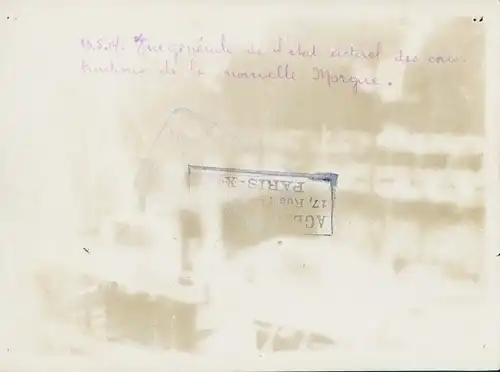 13.5.14. Vue générale de l'état actuel des cons-
tructions de la nouvelle Morgue.
PARIS-X
17, Rue
AGE